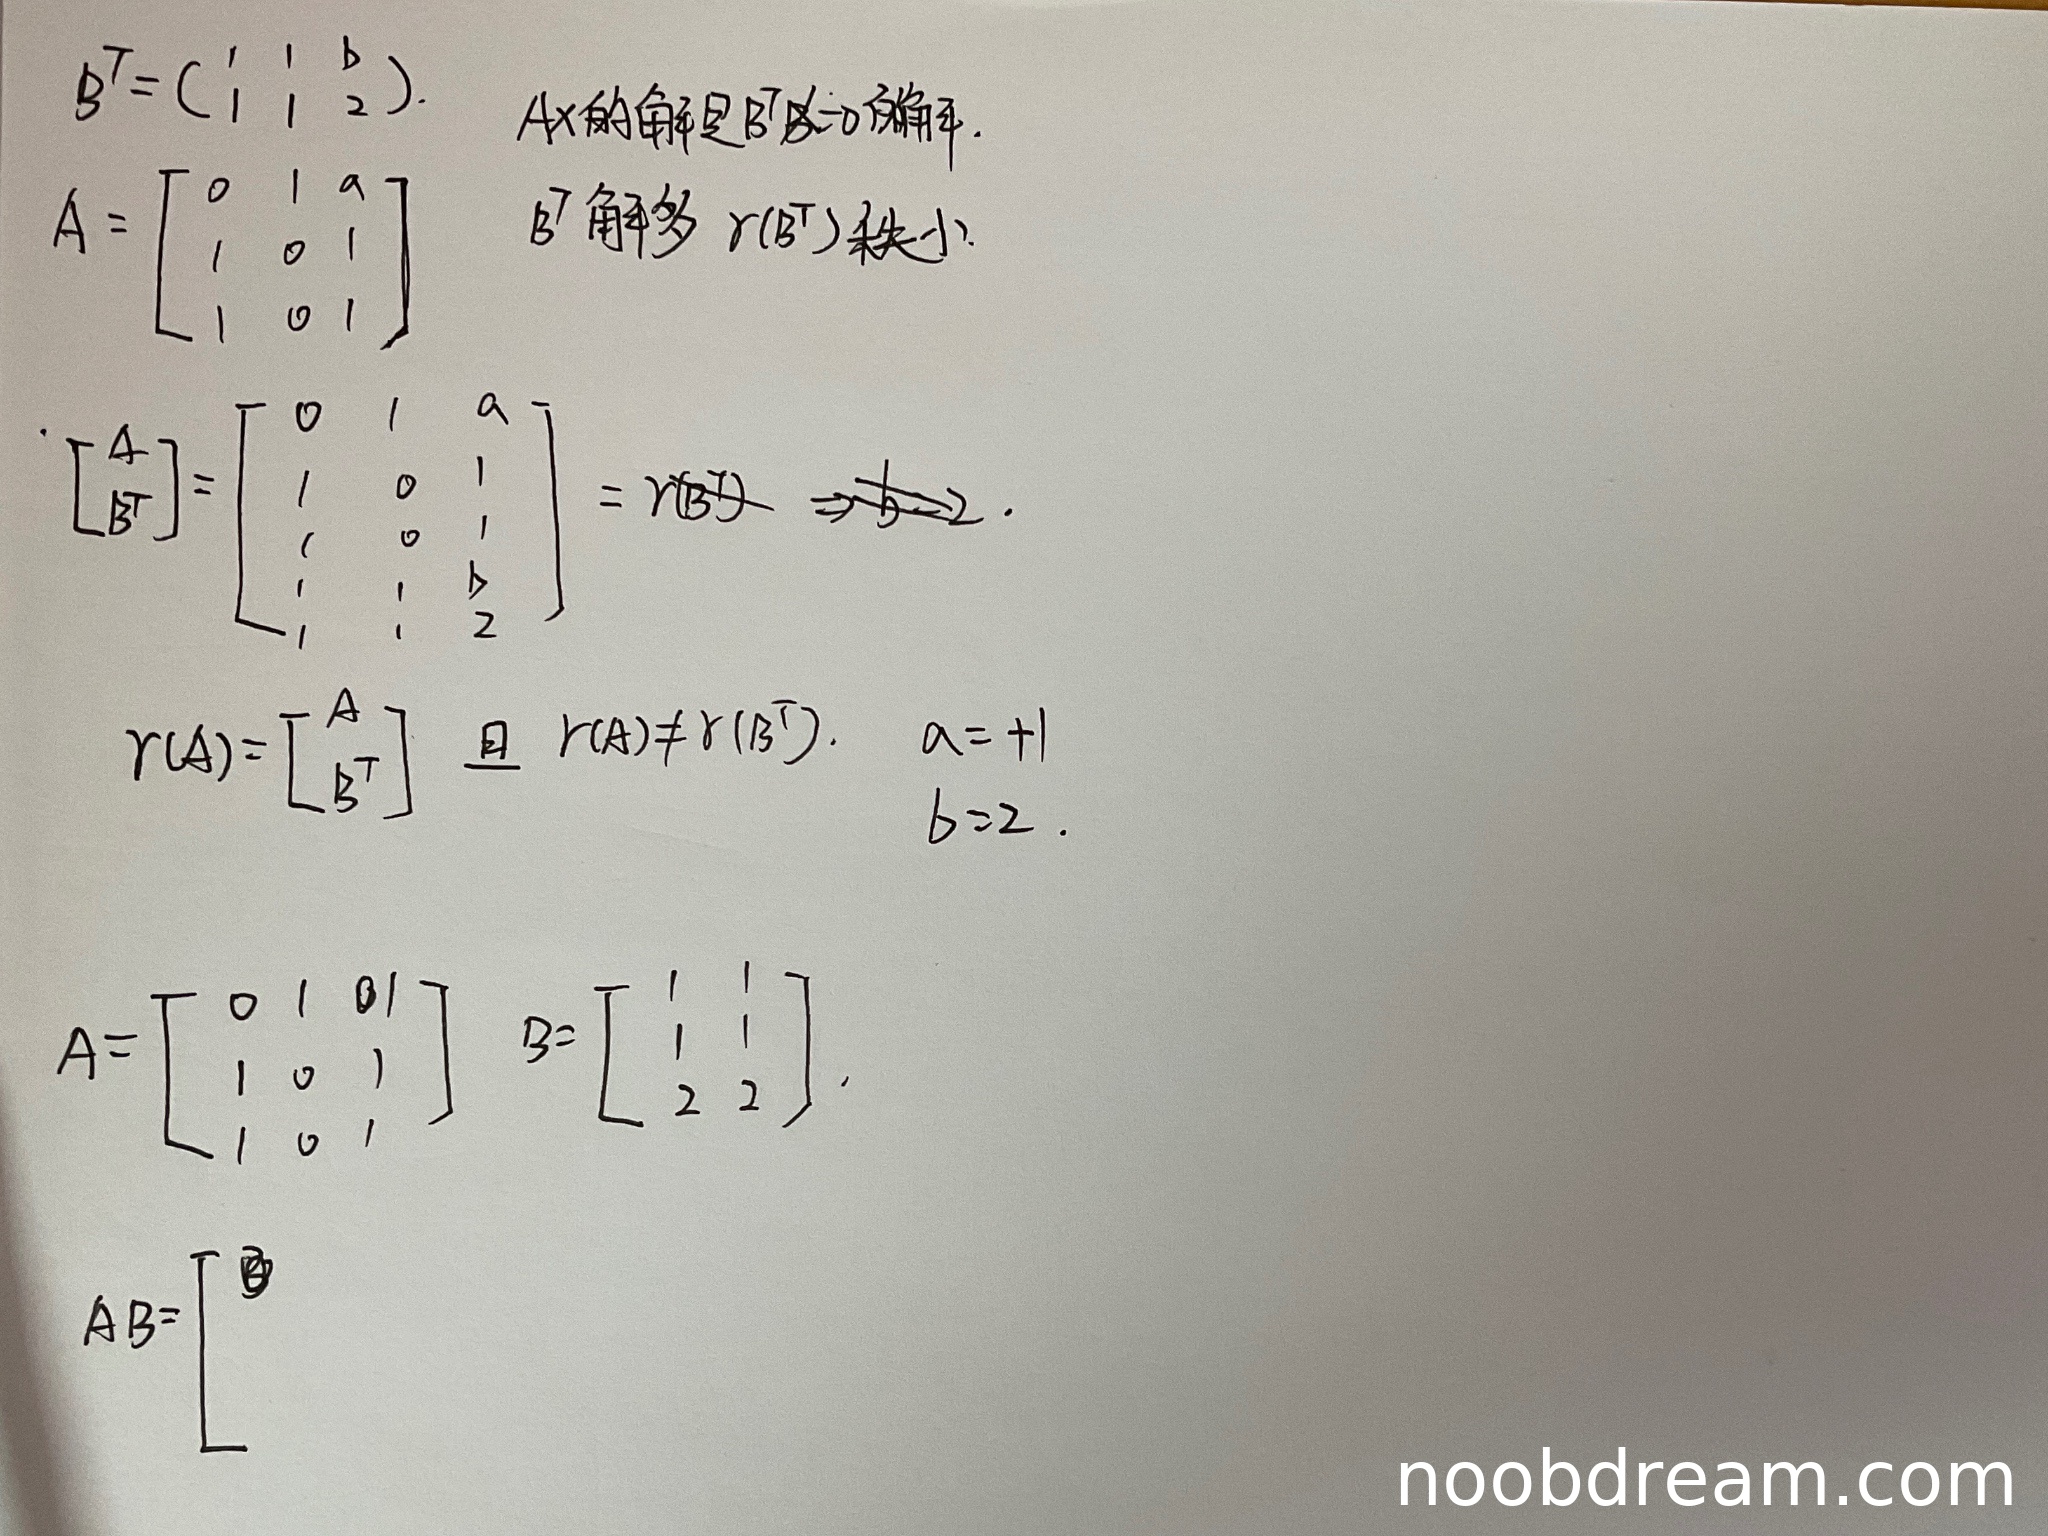 Bᵀ = ( 1 1 b
1 1 2 ).
Ax的解是BᵀX=0的解.
Bᵀ解多 r(Bᵀ)秩小.
A = [ 0 1 a
1 0 1
1 0 1 ]
[ A
Bᵀ ] = [ 0 1 a
1 0 1
1 0 1
1 1 b
1 1 2 ] = r(Bᵀ) ⇒ b=2.
r(A) = [ A
Bᵀ ] 且 r(A)≠r(Bᵀ). a=+1
b=2.
A = [ 0 1 1
1 0 1
1 0 1 ]
B = [ 1 1
1 1
2 2 ].
AB = [
noobdream.com